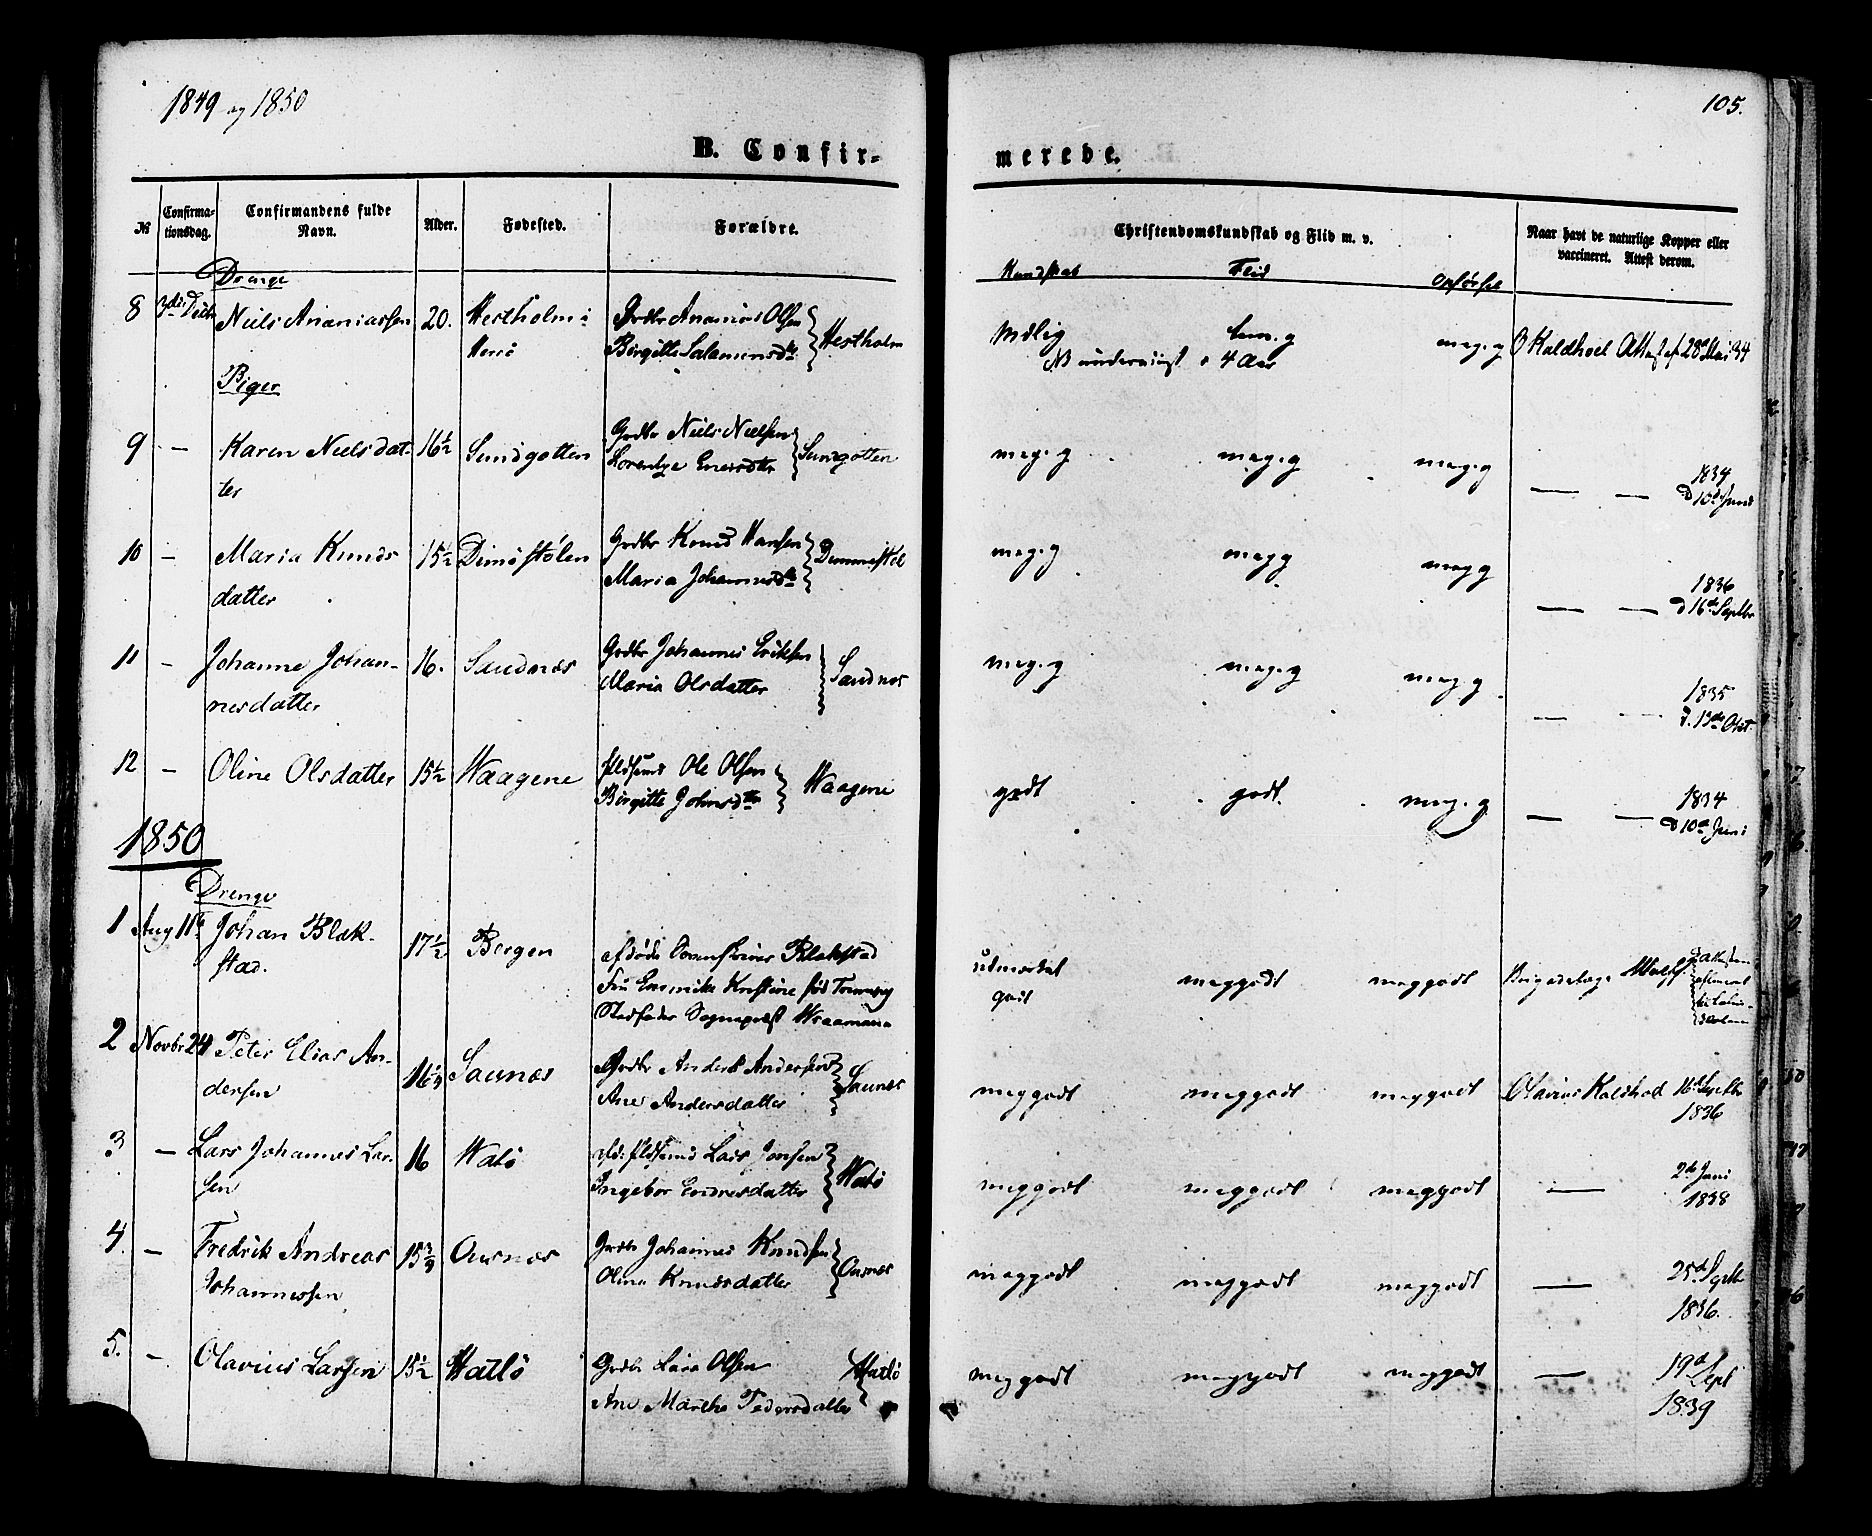 1849 og 1850
105.
B. Confir-
merede.
№
Confirma-
tionsdag.
Confirmandens fulde
Navn.
Alder.
Fødested.
Forældre.
Christendomskundskab og Flid m. v.
Naar havt de naturlige Kopper eller
vaccineret. Attest derom.
Kundskab Flid Opførsel
Drenge
8 Niels Ananiassen 20. Hestholm i
Herø
Grdbr Ananias Olsen
Birgitte Salamonsdtr
Hestholm
Mdlig tem. g meg. g O Kaldhoel Attest af 28de Mai 34
NB underviist i 4 Aar
Piger
9 — Karen Nielsdat-
ter
16½ Sundgotten
Grdbr Niels Nielsen
Enersdtr
Sundgotten
meg. g meg. g meg. g
— — 1834
d 10de Juni
10 — Maria Knuds
datter
15½ Dimøstølen
Grdbr Knud Hansen
Maria Johannesdtr
Dimmestøl
meg. g meg g meg g
— — 1836
d 16de Septbr
11 — Johanne Johan-
nesdatter
16. Sandnæs
Grdbr Johannes Eriksen
Maria Olsdatter
Sandnæs
meg. g meg. g meg g
— — 1835
d. 13de Okt.
12 — Oline Olsdatter 15½ Waagene
Pldsmd Ole Olsen
Birgitte Johnsdtr
Waagene
godt godt. meg. g
— — 1834
d 10de Juni
1850
Drenge
1 Aug 11te Johan Blak-
stad.
17½ Bergen
afdøde Sorenskriver Blakstad
Fru Kristine fød
Stedfader Sognepræst
udmærket
godt
meggodt meggodt Brigadelæge
2 Novbr 24 Peter Elias An-
dersen
Saunæs
Grdbr Anders Andersen
Ane Andersdatter
Saunæs
meggodt meggodt meggodt Olavius Kaldhol 16de Septbr
1836
3 — Lars Johannes Lar-
sen
16 Hatlø
afd. Pldsmd Lars Jonsen
Ingebor Endresdatter
Hatlø
meggodt meggodt meggodt — 2de Juni
1838
4. — Fredrik Andreas
Johannessen
Ousnæs
Grdbr Johannes Knudsen
Oline Knudsdatter
Ousnæs
meggodt meggodt meggodt — 25de Septbr
1836.
5. — Olavius Larsen 15½ Hatlø
Grdbr Lars Olsen
Ane Marthe Pedersdatter
Hatlø
meggodt meggodt meggodt — 19de Sept
1839